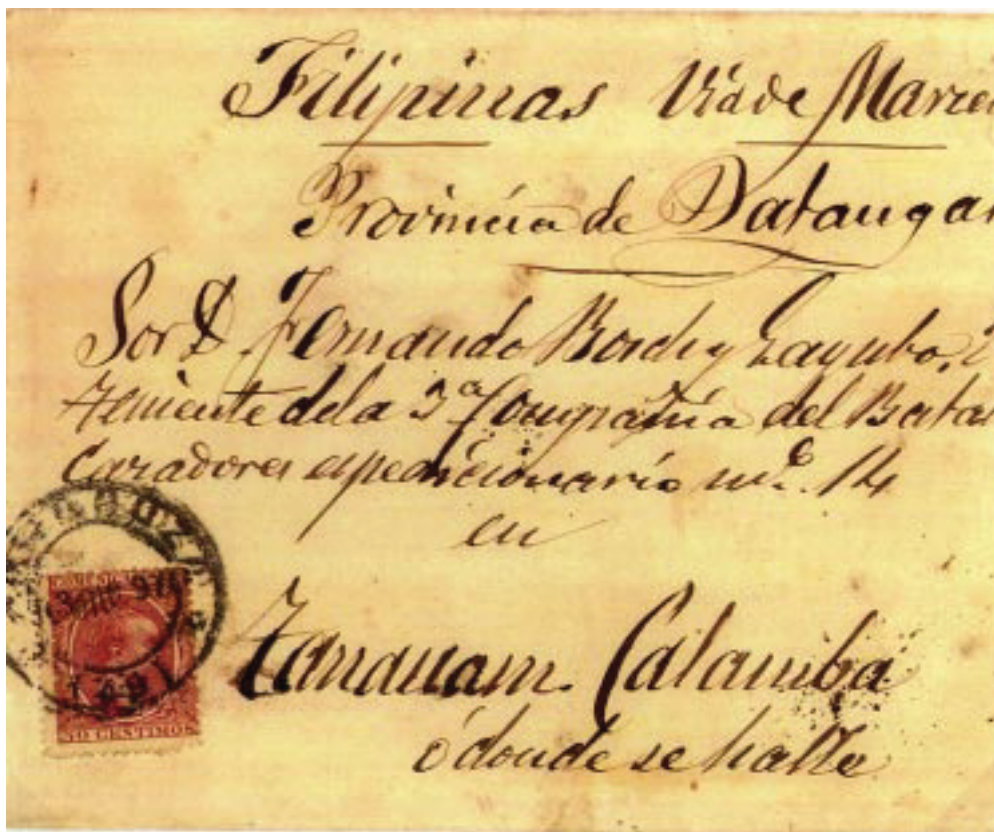 Filipinas Via de
Provincia de Batangas
Sor D. Fernando Bordi y
Teniente de la 3ª Compañia del
Cazadores espedicionario nº. 14
en
Tanauam. Calamba
ó donde se halle
CENTIMOS